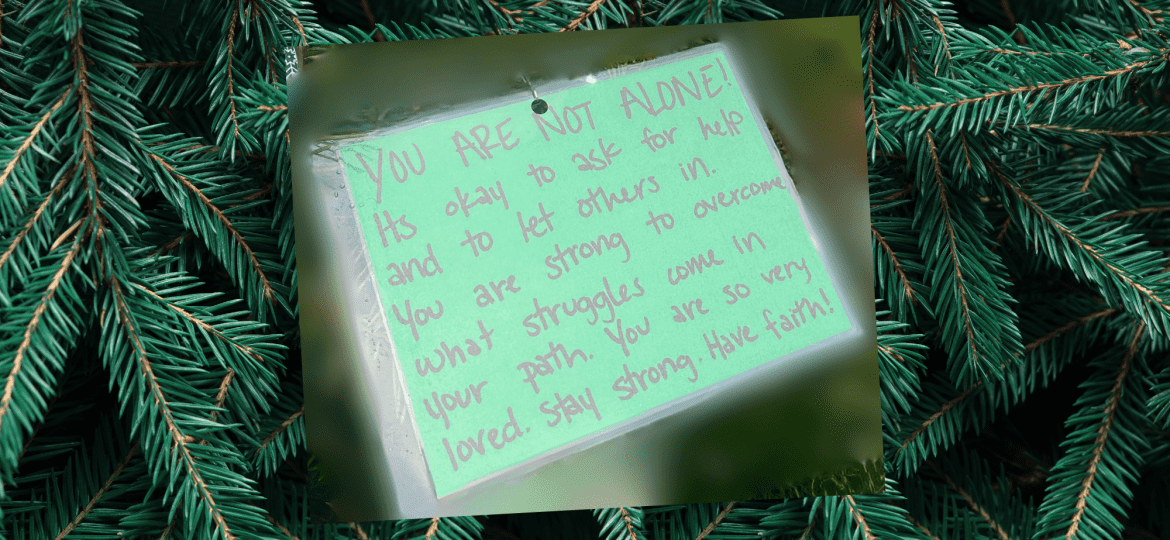 YOU ARE NOT ALONE!
Its okay to ask for help
and to let others in.
You are strong to overcome
what struggles come in
your path. You are so very
loved. Stay strong. Have faith!